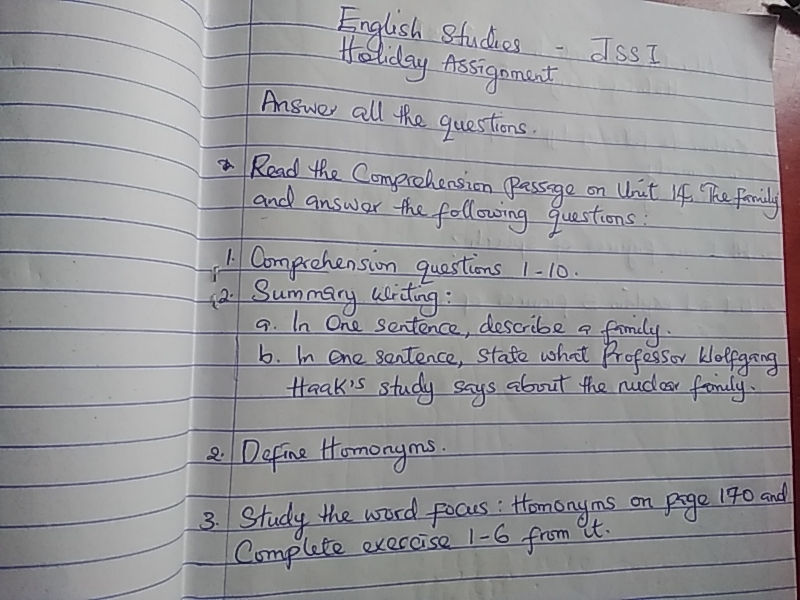 English Studies - JSS I
Holiday Assignment
Answer all the questions.
* Read the Comprehension passage on Unit 14. The family
and answer the following questions:
1. Comprehension questions 1-10.
2. Summary writing:
a. In One sentence, describe a family.
b. In one sentence, state what Professor Wolfgang
Haak's study says about the nuclear family.
2. Define Homonyms.
3. Study the word focus: Homonyms on page 170 and
Complete exercise 1-6 from it.